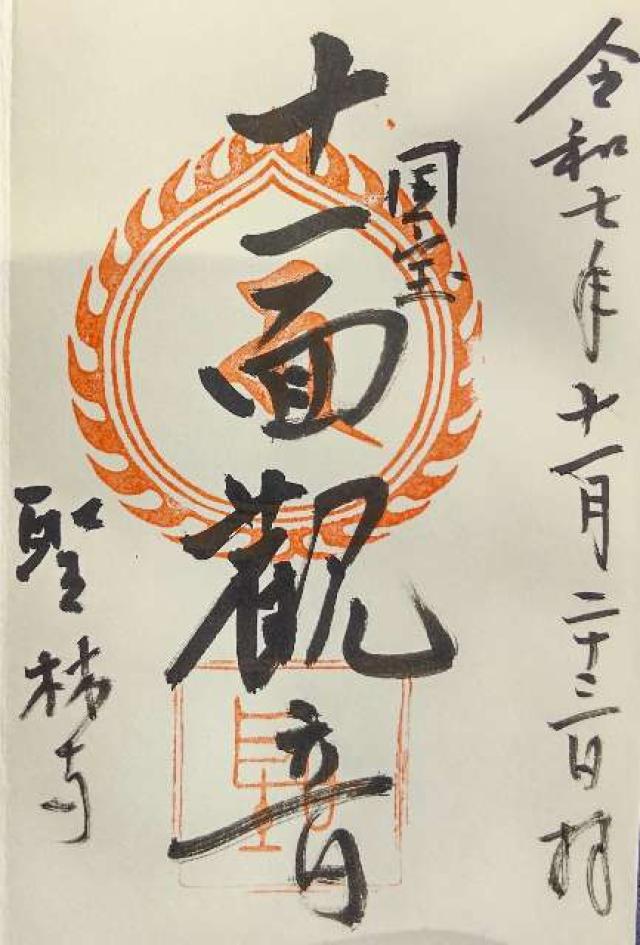 令和七年十一月二十三日拝
国宝
十一面觀音
聖林寺